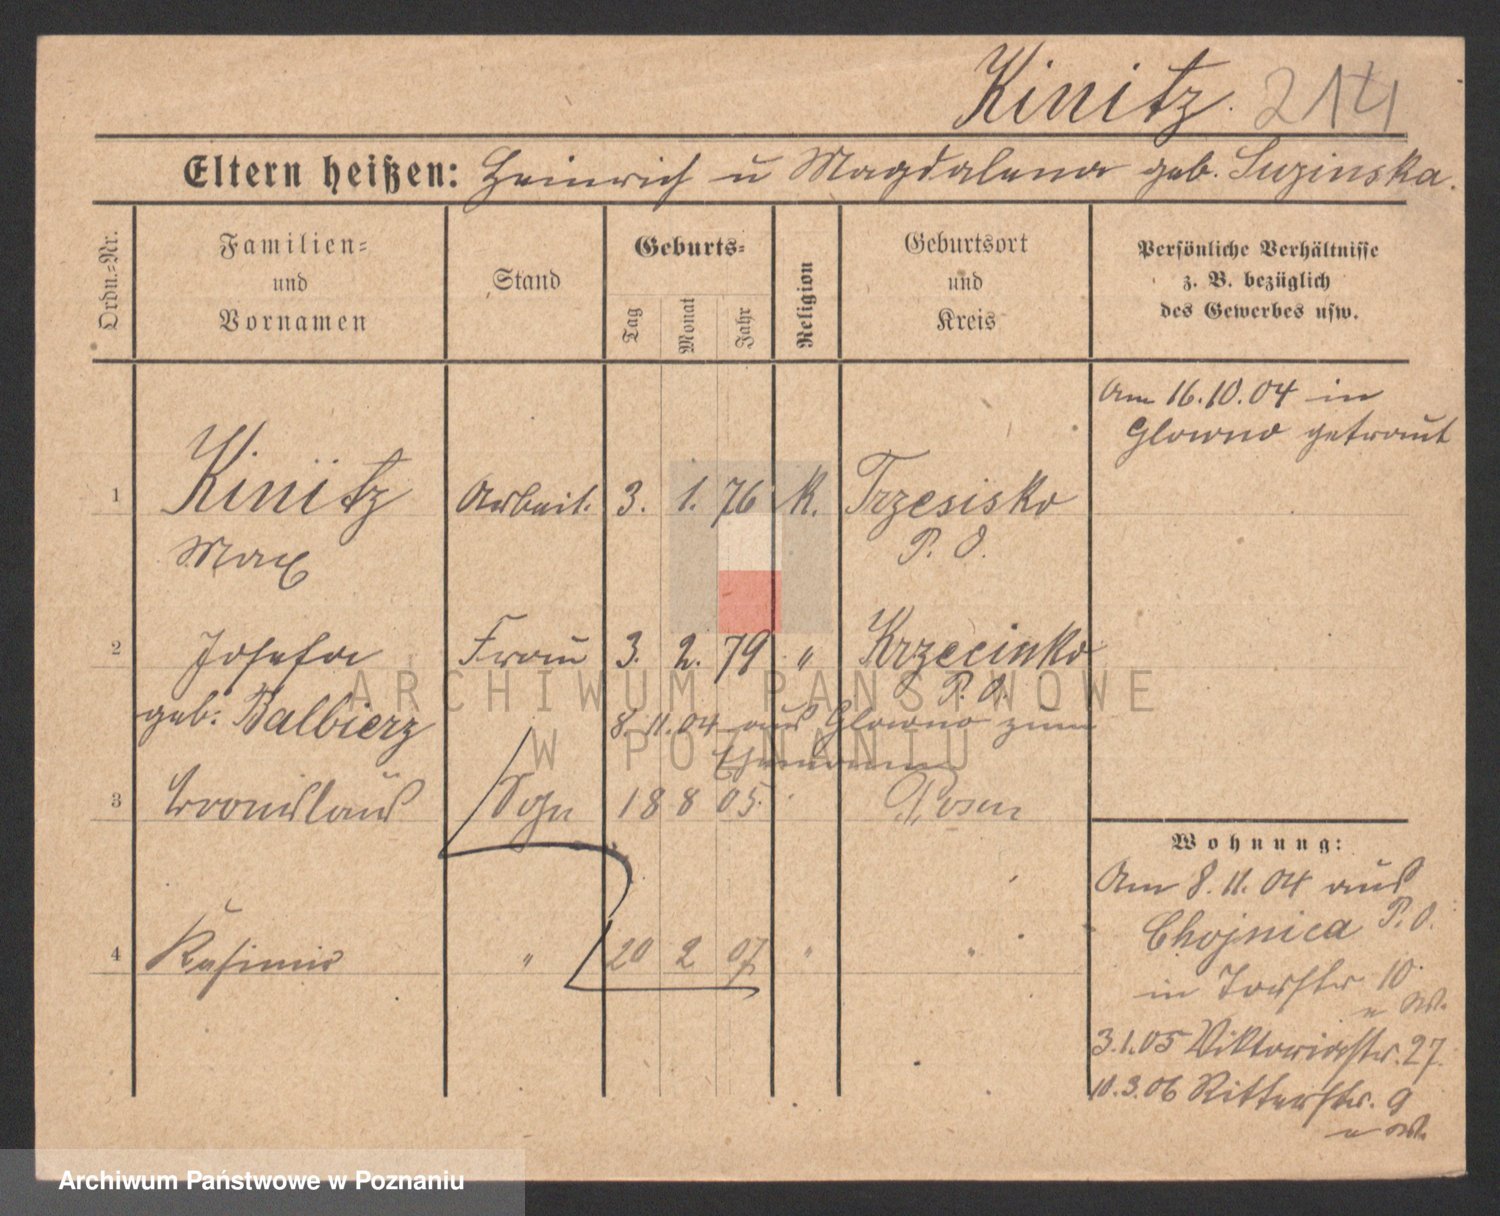 Kinitz. 214
Eltern heißen: Heinrich u Magdalena geb. Suzinska.
Ordn.=Nr.
Familien=
und
Vornamen
Stand
Geburts=
Tag
Monat
Jahr
Religion
Geburtsort
und
Kreis
Persönliche Verhältnisse
z. B. bezüglich
des Gewerbes usw.
Am 16.10.04 in
Glowno getraut
1 Kinitz Arbeit. 3. 1. 76 K. Trzesisko
Max P. O.
2 Josefa Frau 3. 2. 79 " Krzecinko
geb. Balbierz P. O.
8.11.04 aus Glowno zum
3 Bronislaus Sohn 18 8 05. Posen
4 Kasimir " 20 2 07 " "
Wohnung:
Am 8.11.04 aus
Chojnica P. O.
in Torstr 10
3.1.05 Viktoriastr. 27
10.3.06 Ritterstr. 9
ARCHIWUM PAŃSTWOWE
W POZNANIU
Archiwum Państwowe w Poznaniu